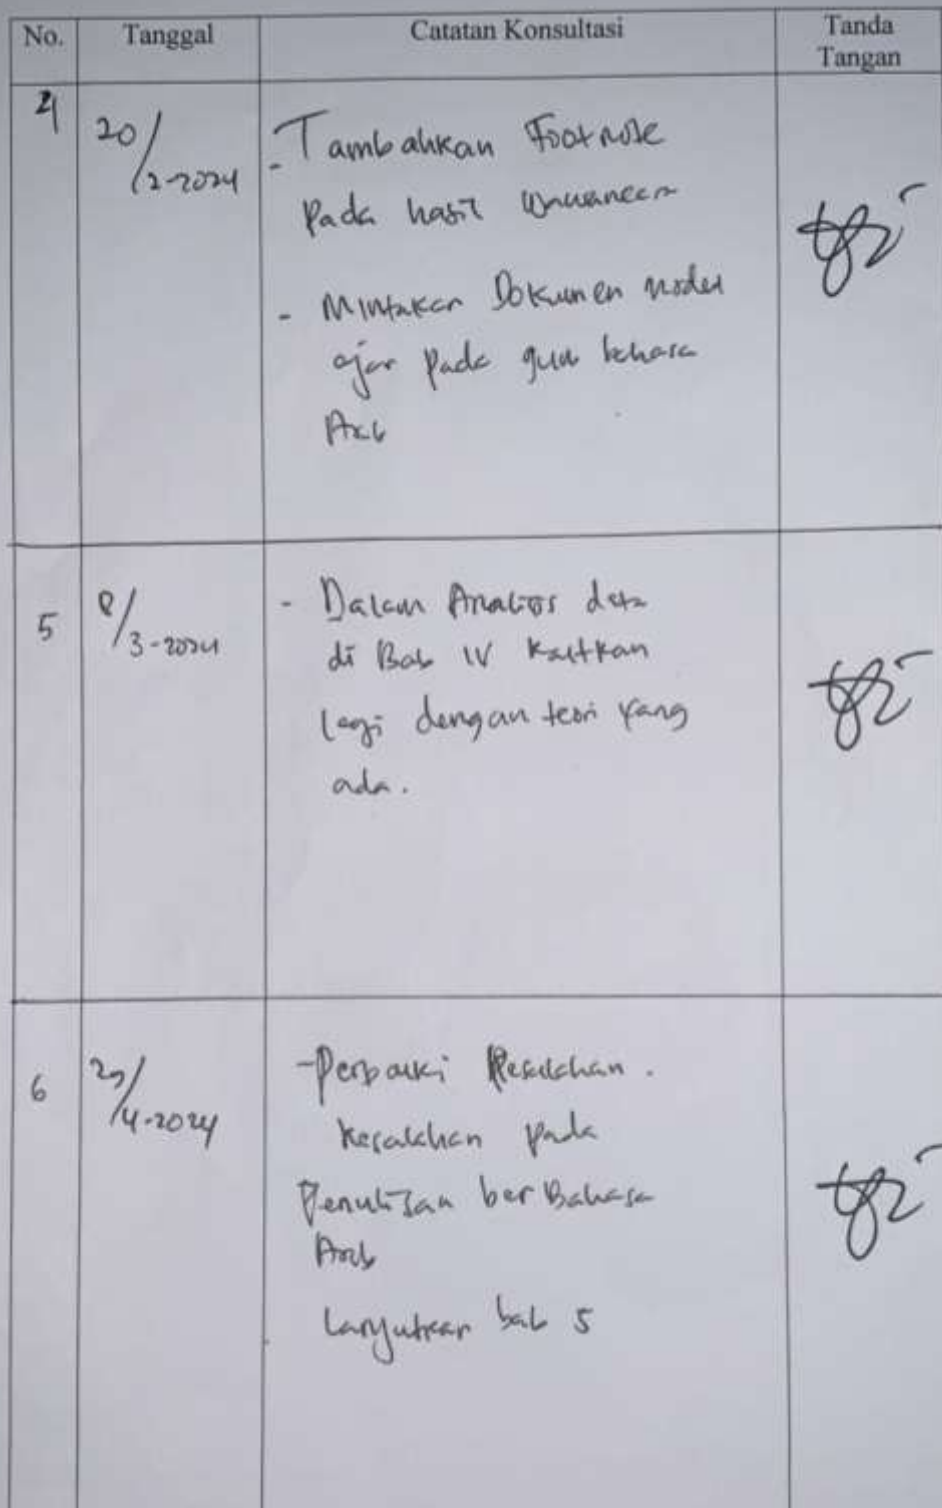 No. Tanggal Catatan Konsultasi Tanda Tangan
4 20/2-2024 - Tambahkan Footnote
pada hasil wawancara
- Mintakan Dokumen modul
ajar pada guru bahasa
Arab
5 8/3-2024 - Dalam Analisis data
di Bab IV kaitkan
lagi dengan teori yang
ada.
6 /4-2024 - Perbaiki kesalahan.
kesalahan pada
Penulisan ber Bahasa
Arab
Lanjutkan bab 5